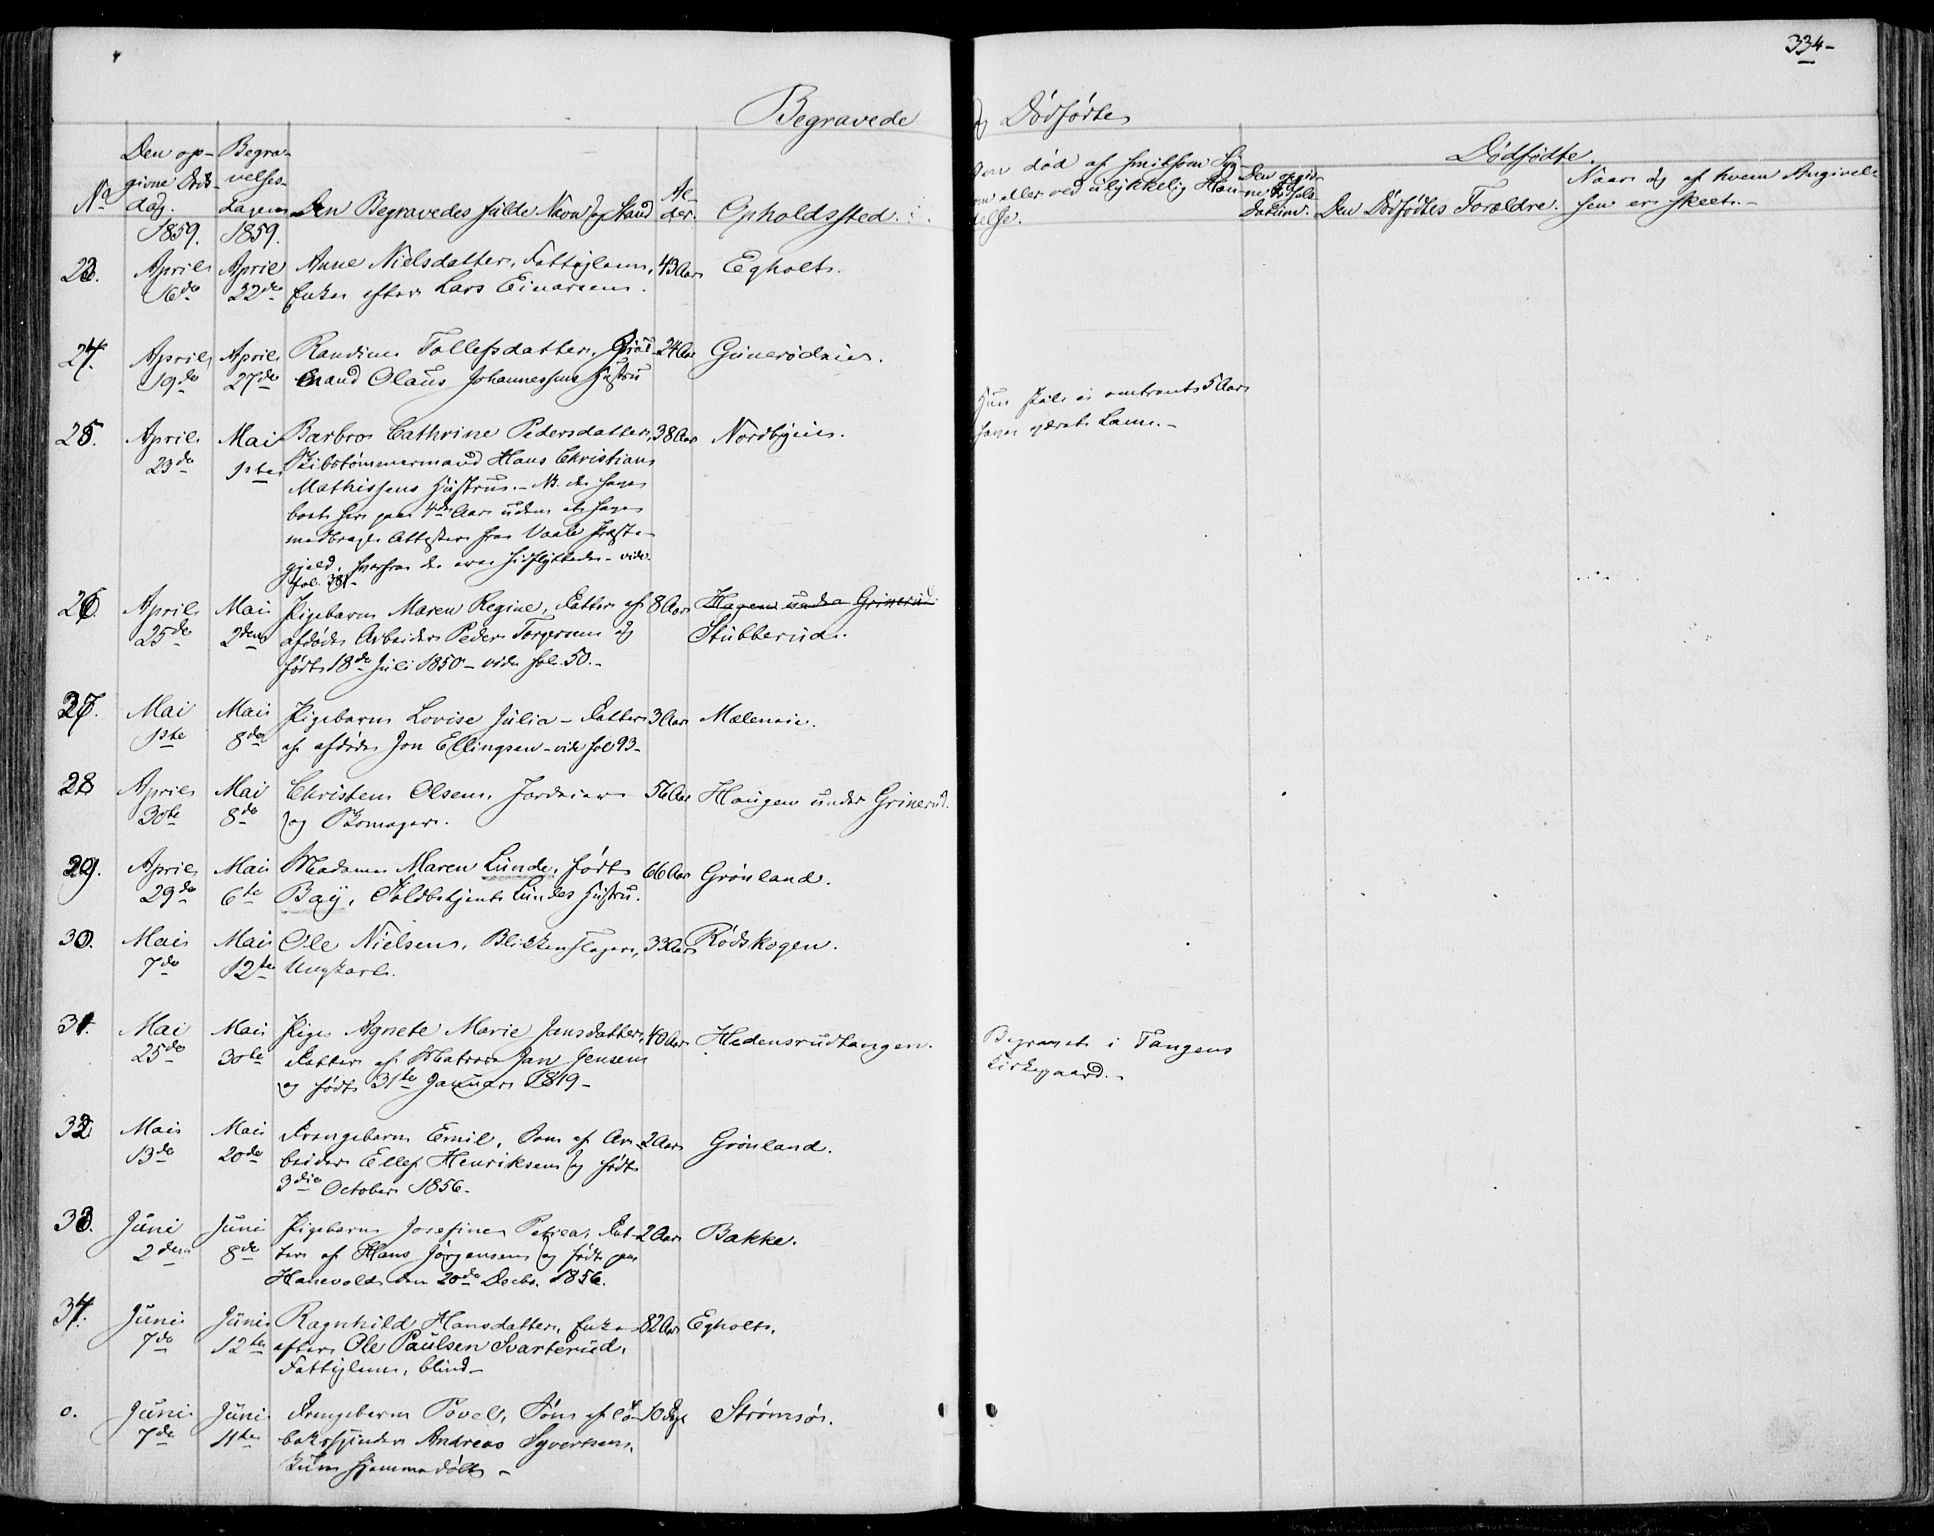 334-
Begravede
og Dödfödte
Den op-
givne Döds-
dag.
1859.
Begra-
velses-
Dagen
1859.
No
Den Begravedes fulde Navn og Stand
Al-
der.
Opholdssted.
død af smitsom Syg-
eller ved ulykkelig Hæn-
delse.
Datum.
Dödfödte.
Den Dödfödtes Forældre.
Naar og af hvem Angivel-
sen er skeet.
23. April 16de April 22de Anne Nielsdatter, Fattiglem, 43 Aar Egholt.
Enke efter Lars Einarsen.
24. April 19de April 27de Randine Tollefsdatter, 24 Aar
mand Olaus Johannessens Hustru
Hun skal i omtrent 5 Aar
have været Lam.-
25. April 23de Mai 1ste Barbro Cathrine Pedersdatter, 38 Aar Nordbyeie.
Skibstømmermand Hans Christian
Mathissens Hustru. - NB. de have
boet her paa 4de Aar uden at have
medbragt Attester fra Vaale Præste-
gjeld, hvorfra de ere hidflyttede - vide
fol. 381-
26. April 25de Mai 2den Pigebarn Maren Regine, Datter af 8 Aar Hagen under Grinerud
afdøde Arbeider Peder Torgersen og Stubberud.
født 18de Juli 1850 - vide fol. 50.-
27. Mai 1ste Mai 8de Pigebarn Lovise Julia - Datter 3 Aar Mæleneie.
af afdøde Jon Ellingsen - vide fol 93-
28 April 30te Mai 8de Christen Olsen, Jordeier 56 Aar Haugen under Grinerud.
og Skomager.
29. April 29de Mai 6te Madame Maren Lunde, født 66 Aar Grönland.
Bay, Toldbetjent Lundes Hustru.
30. Mai 7de Mai 12te Ole Nielsen, Blikkenslager, 33 Aar Rödskogen.
Ungkarl.
31. Mai 25de Mai 30te Pige Agnete Marie Jansdatter, 40 Aar Hedensrudtangen.
Datter af Matros Jan Jensen
og født 31te Januar 1819-
Begravet i Tangens
Kirkegaard.-
32 Mai 13de Mai 20de Drengebarn Emil, Søn af Ar- 2 Aar Grönland.
beider Ellef Henriksen og født
3die October 1856-
33. Juni 2den Juni 8de Pigebarn Josefine Petrea, Dat- 2 Aar Bakke.
ter af Hans Jörgensen og født paa
Hanevold den 20de Decbr. 1856.
34. Juni 7de Juni 12te Ragnhild Hansdatter, Enke 82 Aar Egholt.
efter Ole Paulsen Svarterud,
Fattiglem, blind-
0. Juni 7de Juni 11te Drengebarn Povel, Søn af 10 Dage Strömsö.
Andreas Syvertsen,
kun hjemmedøbt -